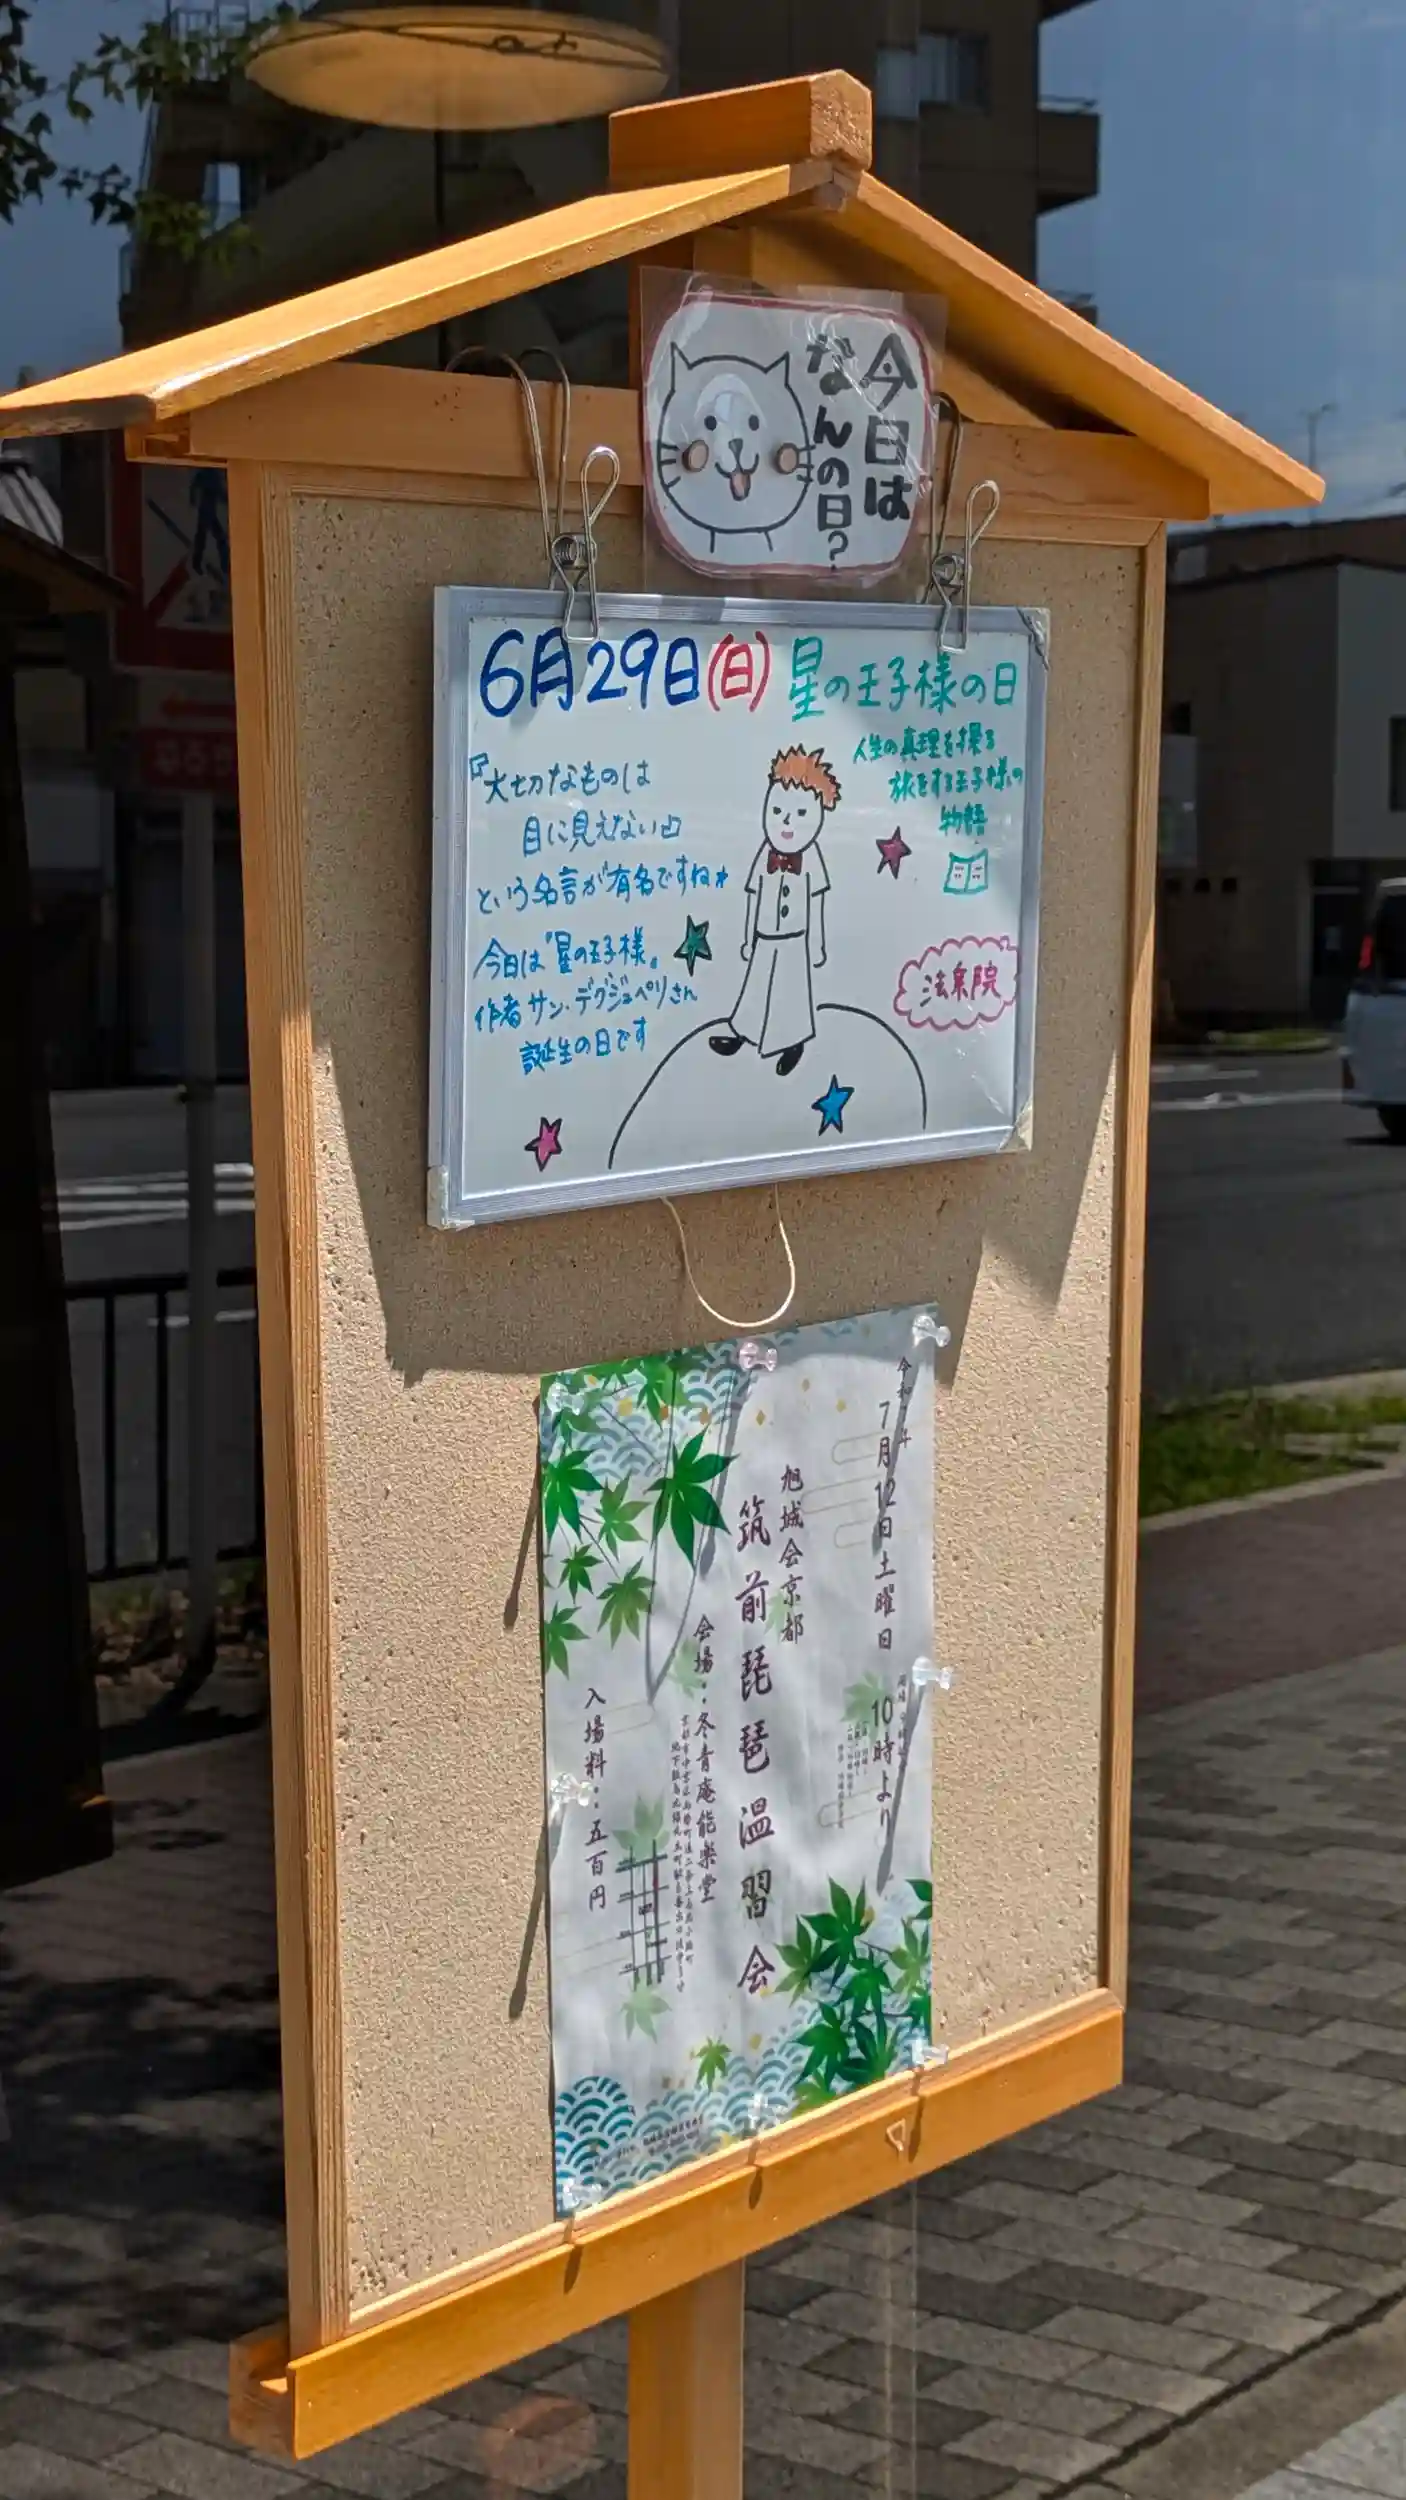 今日は
なんの日?
6月29日(日) 星の王子様の日
『大切なものは
目に見えない』
という名言が有名ですね
今日は『星の王子様』
作者サン・デグジュペリさん
誕生の日です
人生の真理を探る
旅をする王子様の
物語
法泉院
令和7年
7月12日土曜日
10時より
旭城会京都
筑前琵琶温習会
会場:冬青庵能楽堂
入場料:五百円